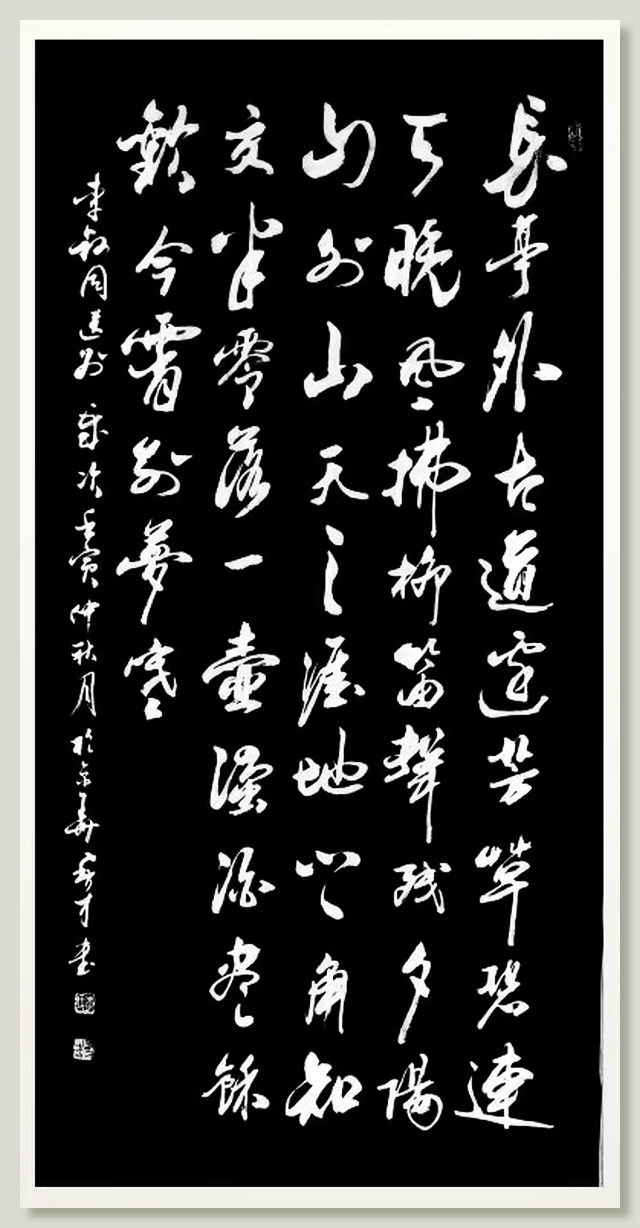 長亭外古道邊芳草碧連
天晚風拂柳笛聲殘夕陽
山外山天之涯地之角知
交半零落一壺濁酒盡餘
歡今宵別夢寒
李叔同送別 歲次壬寅仲秋月於京華才書